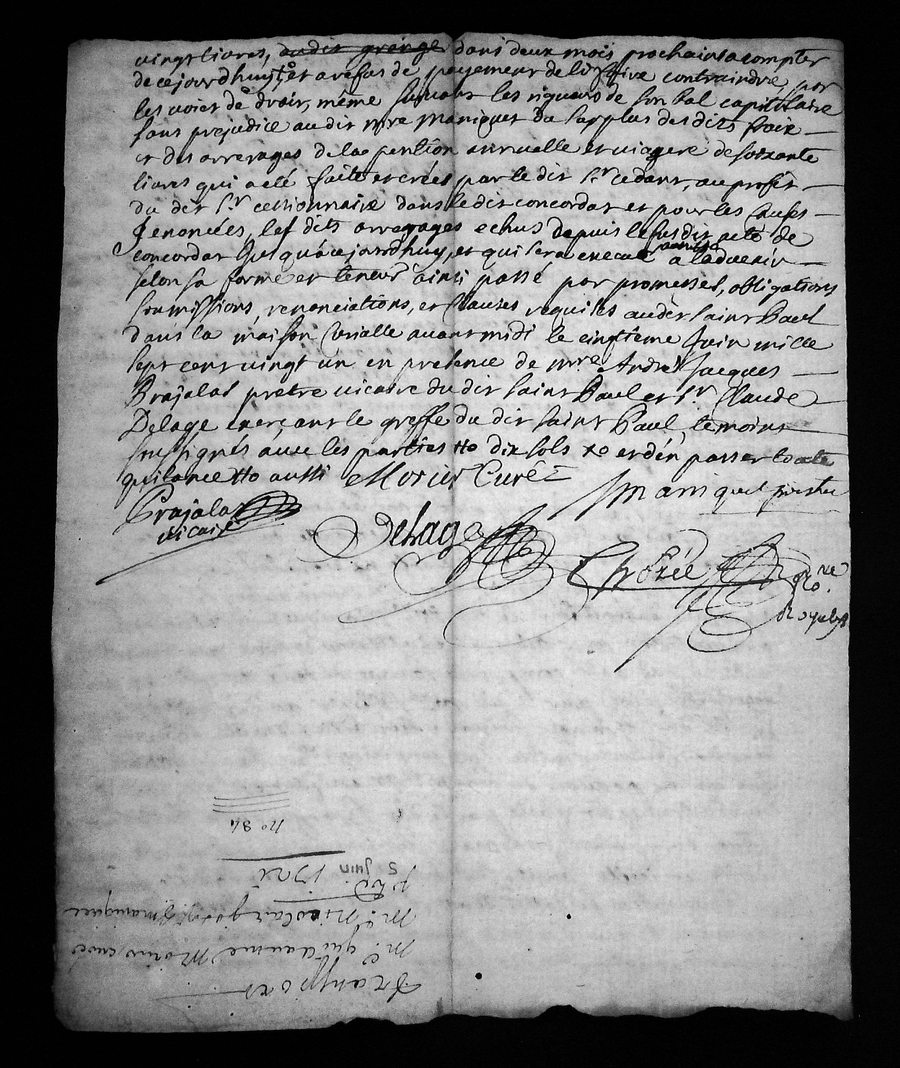 vingt livres, dans deux mois prochains a compter
de ce jourdhuy et a refus de payement de contraindre, par
les voies de droit, même suivant les rigueurs de son bal capitulaire
sans prejudice audit mre maniquet du surplus des dits frais
et des arrerages de la pention annuelle et viagere de soixante
livres qui a eté faite et créée par le dit sr cedant, au profit
du dit sr cessionnaire dans le dit concordat et pour les causes
y enoncées, les dits arrerages echus depuis le susdit acte de
concordat jusquá cejourdhuy, et qui sera executé à ladvenir
selon sa forme et teneur ainsi passé par promesses, obligations
soumissions, renonciations, et clauses requises audit saint Paul
dans la maison Curialle avant midi le cinqième Juin mille
sept cent vingt un en presence de mre André Jacques
Brajalat pretre vicaire du dit saint Paul et sr Claude
Delage exerçant le greffe du dit saint Paul temoins
soussignés avec les parties dix sols et den passer toute
quitance aussi Morier Curé
maniquet prestre
Prajalat
vicaire
Delage
Chozée
No 84
5 juin 1721
Mre Nicolas maniquet
Mre guillaume Morier curé
Transport